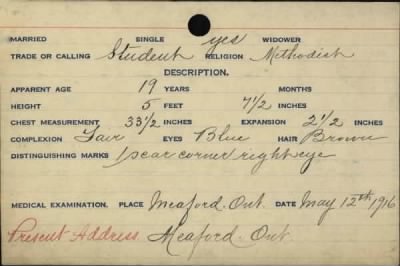 MARRIED SINGLE yes WIDOWER
TRADE OR CALLING Student RELIGION Methodist
DESCRIPTION.
APPARENT AGE 19 YEARS MONTHS
HEIGHT 5 FEET 7 1/2 INCHES
CHEST MEASUREMENT 33 1/2 INCHES EXPANSION 2 1/2 INCHES
COMPLEXION Fair EYES Blue HAIR Brown
DISTINGUISHING MARKS 1 scar corner right eye
MEDICAL EXAMINATION. PLACE Meaford. Ont. DATE May 12th 1916
Present Address Meaford. Ont.